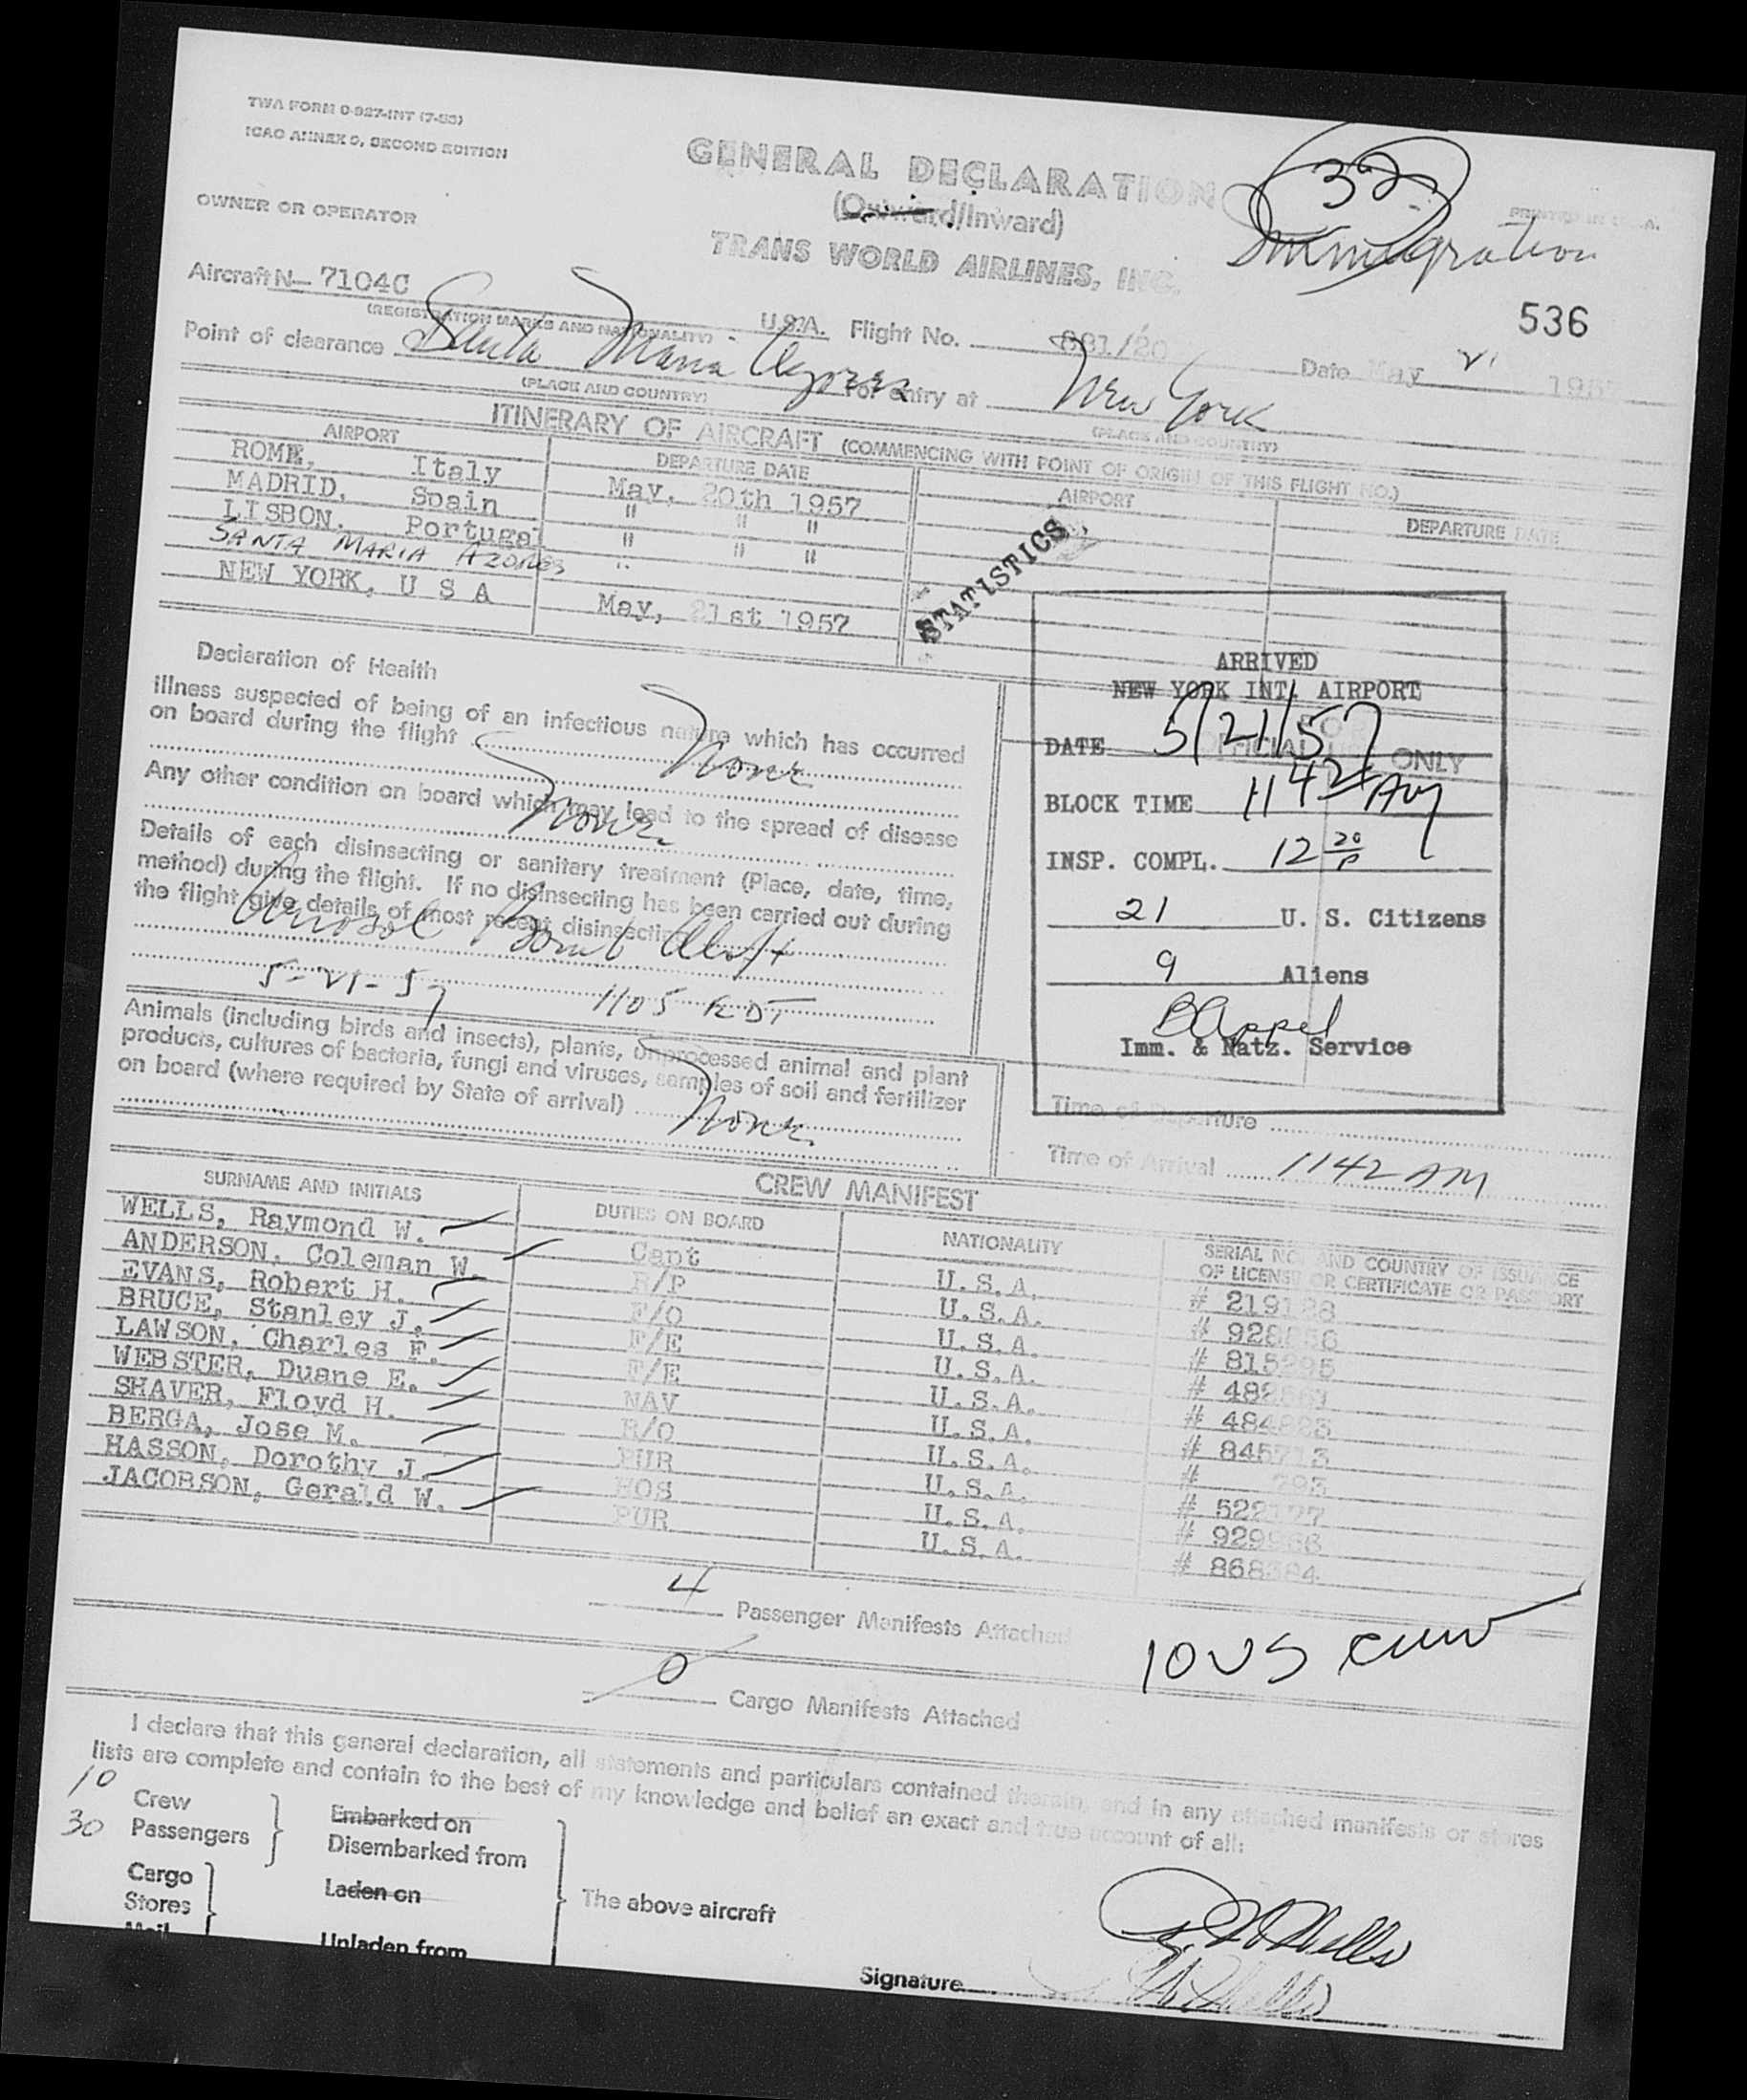 TWA FORM 0-927-INT (7-53)
ICAO ANNEX 9, SECOND EDITION
GENERAL DECLARATION
(Outward/Inward)
TRANS WORLD AIRLINES, INC.
Immigration
536
OWNER OR OPERATOR
Aircraft N- 7104C U.S.A. Flight No. 881/20 Date May 21 195
(REGISTRATION MARKS AND NATIONALITY)
Point of clearance Santa Maria Azores For entry at New York
(PLACE AND COUNTRY) (PLACE AND COUNTRY)
ITINERARY OF AIRCRAFT (COMMENCING WITH POINT OF ORIGIN OF THIS FLIGHT NO.)
AIRPORT DEPARTURE DATE AIRPORT DEPARTURE DATE
ROME, Italy May, 20th 1957
MADRID, Spain " " "
LISBON. Portugal " " "
SANTA MARIA AZORES "
NEW YORK, U S A May, 21st 1957
STATISTICS
Declaration of Health
Illness suspected of being of an infectious nature which has occurred
on board during the flight None
Any other condition on board which may lead to the spread of disease
None
Details of each disinsecting or sanitary treatment (Place, date, time,
method) during the flight. If no disinsecting has been carried out during
the flight give details of most recent disinsecting
Aerosol Bomb Aloft
5-21-57 1105 EDT
Animals (including birds and insects), plants, unprocessed animal and plant
products, cultures of bacteria, fungi and viruses, samples of soil and fertilizer
on board (where required by State of arrival) None
FOR
OFFICIAL USE ONLY
ARRIVED
NEW YORK INT. AIRPORT
DATE 5/21/57
BLOCK TIME 1142 AM
INSP. COMPL. 12 20 P
21 U. S. Citizens
9 Aliens
B Appel
Imm. & Natz. Service
Time of Departure
Time of Arrival 1142 AM
CREW MANIFEST
SURNAME AND INITIALS DUTIES ON BOARD NATIONALITY SERIAL NO. AND COUNTRY OF ISSUANCE
OF LICENSE OR CERTIFICATE OR PASSPORT
WELLS, Raymond W. Capt U.S.A. # 219188
ANDERSON, Coleman W. R/P U.S.A. # 928
EVANS, Robert H. F/O U.S.A. # 815295
BRUCE, Stanley J. F/E U.S.A. # 482
LAWSON, Charles F. F/E U.S.A. # 484
WEBSTER, Duane E. NAV U.S.A. # 845713
SHAVER, Floyd H. R/O U.S.A. # 793
BERGA, Jose M. PUR U.S.A. # 522177
HASSON, Dorothy J. HOS U.S.A. # 929
JACOBSON, Gerald W. PUR U.S.A. # 868394
4 Passenger Manifests Attached
10 US crew
0 Cargo Manifests Attached
I declare that this general declaration, all statements and particulars contained therein, and in any attached manifests or stores
lists are complete and contain to the best of my knowledge and belief an exact and true account of all:
10 Crew Embarked on
30 Passengers Disembarked from
Cargo Laden on The above aircraft
Stores
Mail Unladen from
R W Wells
Signature